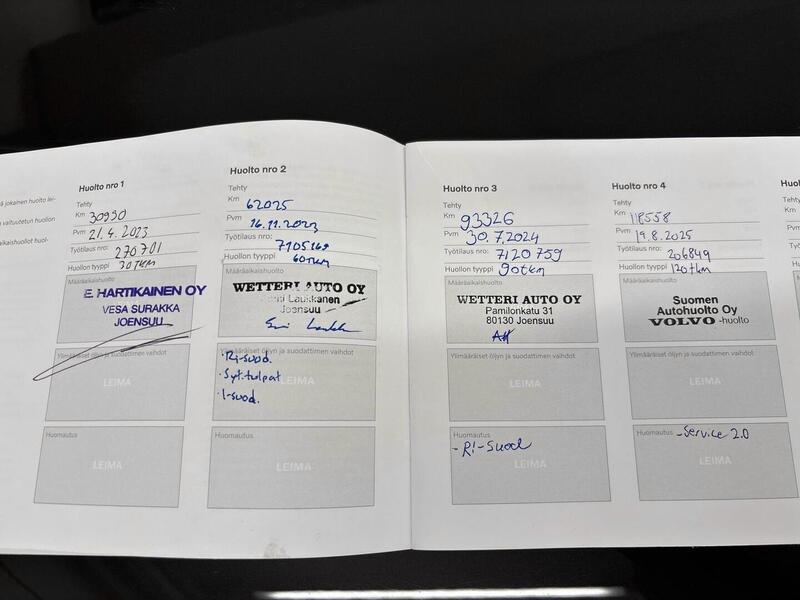 ä jokainen huolto lei-
a valtuutetun huollon
äaikaishuollot huol-
Huolto nro 1
Tehty
Km 30930
Pvm 21.4.2023
Työtilaus nro: 270701
Huollon tyyppi 30tkm
Määräaikaishuolto
E. HARTIKAINEN OY
VESA SURAKKA
JOENSUU
Ylimääräiset öljyn ja suodattimen vaihdot
LEIMA
Huomautus
LEIMA
Huolto nro 2
Tehty
Km 62025
Pvm 16.11.2023
Työtilaus nro: 7105169
Huollon tyyppi 60tkm
Määräaikaishuolto
WETTERI AUTO OY
Laukkanen
Joensuu
Ylimääräiset öljyn ja suodattimen vaihdot
· Ri-suod.
· Syt.tulpat
· I-suod.
LEIMA
Huomautus
LEIMA
Huolto nro 3
Tehty
Km 93326
Pvm 30.7.2024
Työtilaus nro: 7120759
Huollon tyyppi 90tkm
Määräaikaishuolto
WETTERI AUTO OY
Pamilonkatu 31
80130 Joensuu
Ylimääräiset öljyn ja suodattimen vaihdot
LEIMA
Huomautus
- Ri-suod
LEIMA
Huolto nro 4
Tehty
Km 118558
Pvm 19.8.2025
Työtilaus nro: 206849
Huollon tyyppi 120tkm
Määräaikaishuolto
Suomen
Autohuolto Oy
VOLVO -huolto
Ylimääräiset öljyn ja suodattimen vaihdot
LEIMA
Huomautus -Service 2.0
LEIMA